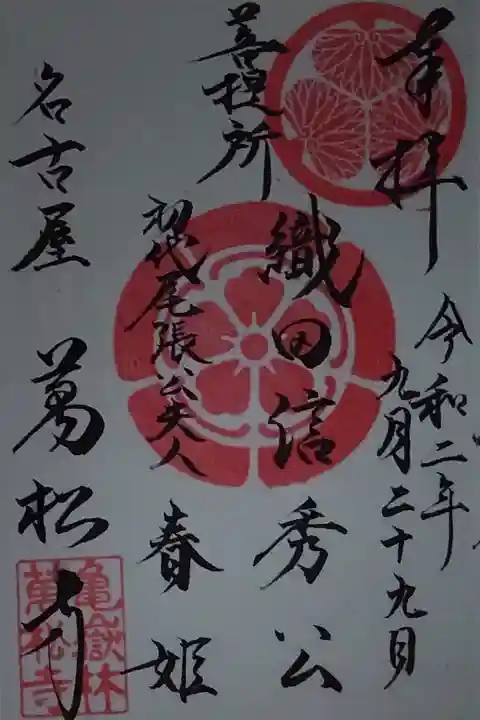 奉拝
令和二年
九月二十九日
菩提所
織田信秀公
初代尾張公夫人
春姫
名古屋 萬松寺
亀嶽林
萬松寺